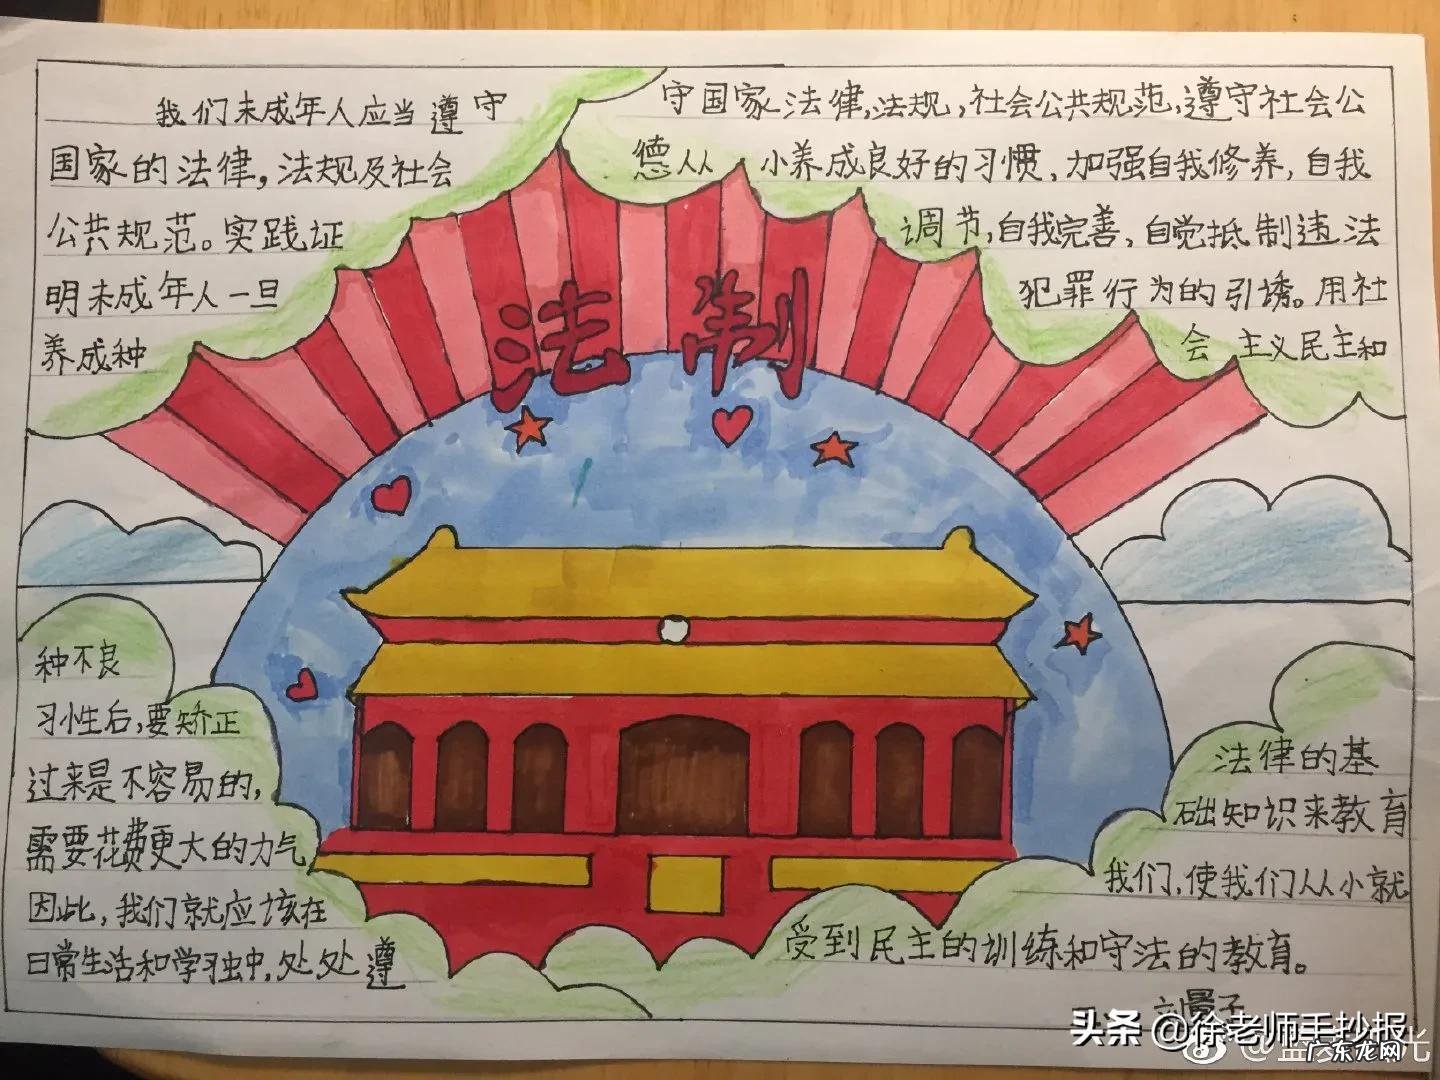 我们未成年人应当遵守
国家的法律,法规及社会
公共规范。实践证
明未成年人一旦
养成种
种不良
习性后,要矫正
过来是不容易的,
需要花费更大的力气
因此,我们就应该在
日常生活和学习中,处处遵
守国家法律,法规,社会公共规范,遵守社会公
德从 小养成良好的习惯,加强自我修养,自我
调节,自我完善,自觉抵制违法
犯罪行为的引诱。用社
会 主义民主和
法律的基
础知识来教育
我们,使我们从小就
受到民主的训练和守法的教育。
法制
头条 @徐老师手抄报
广东龙网